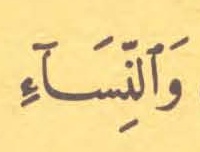 وَٱلنِّسَآءِ